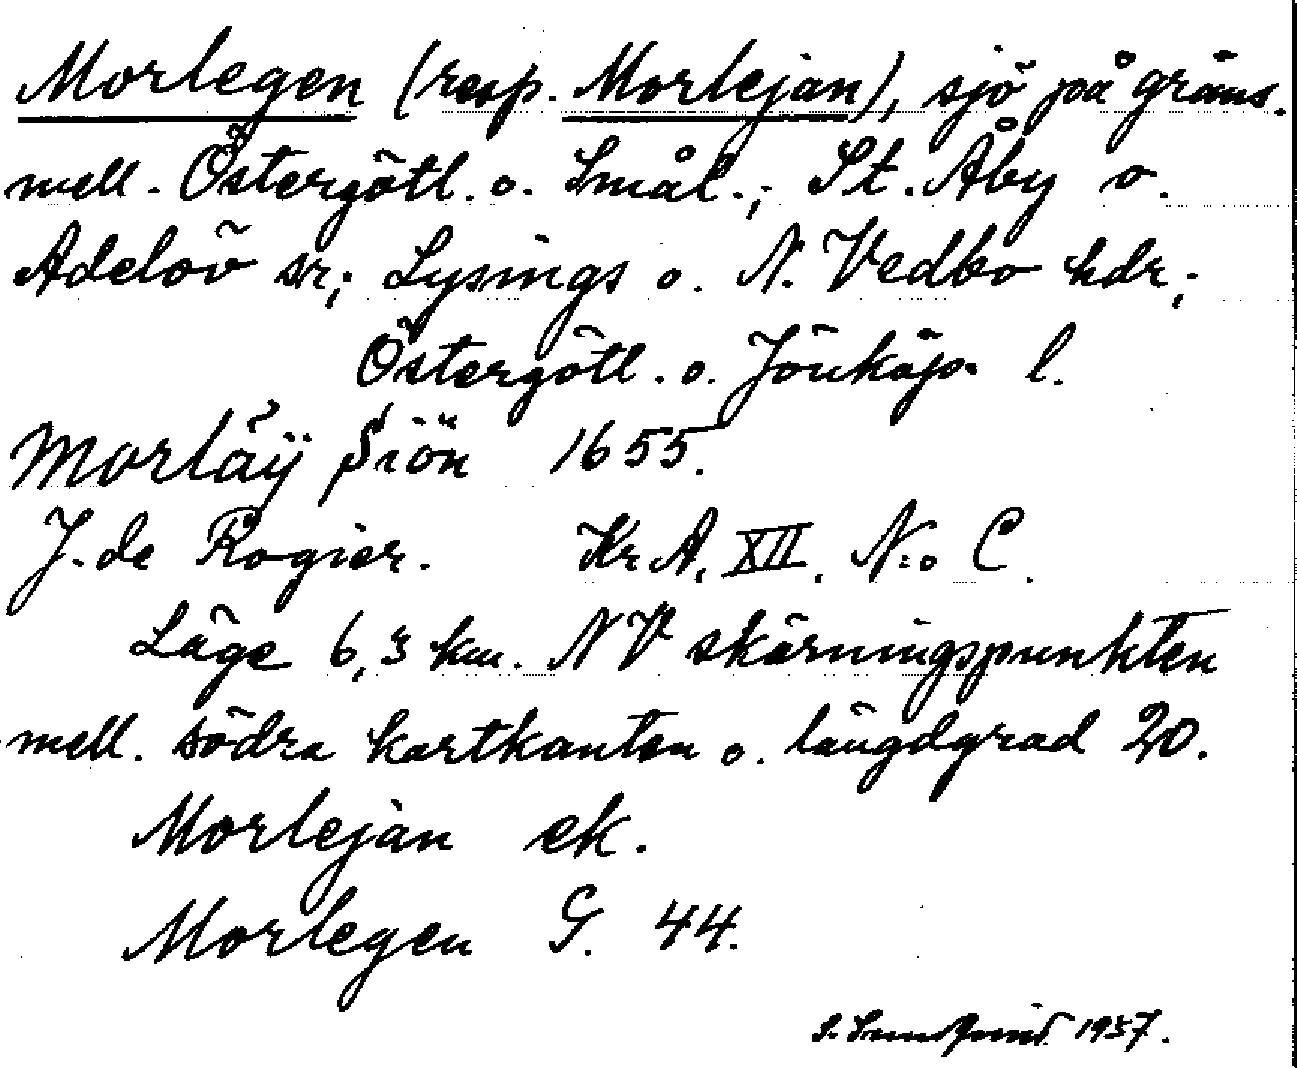 Morlegen (resp. Morlejan), sjö på gräns.
mell. Östergötl. o. Smål.; St. Åby o.
Adelöv sr; Lysings o. N. Vedbo hdr;
Östergötl. o. Jönköp. l.
Morläÿ Siön 1655.
J. de Rogier. Kr A. XII. N:o C.
Läge 6,3 km. NV skärningspunkten
mell. södra kartkanten o. längdgrad 20.
Morlejan ek.
Morlegen G. 44.
1937.